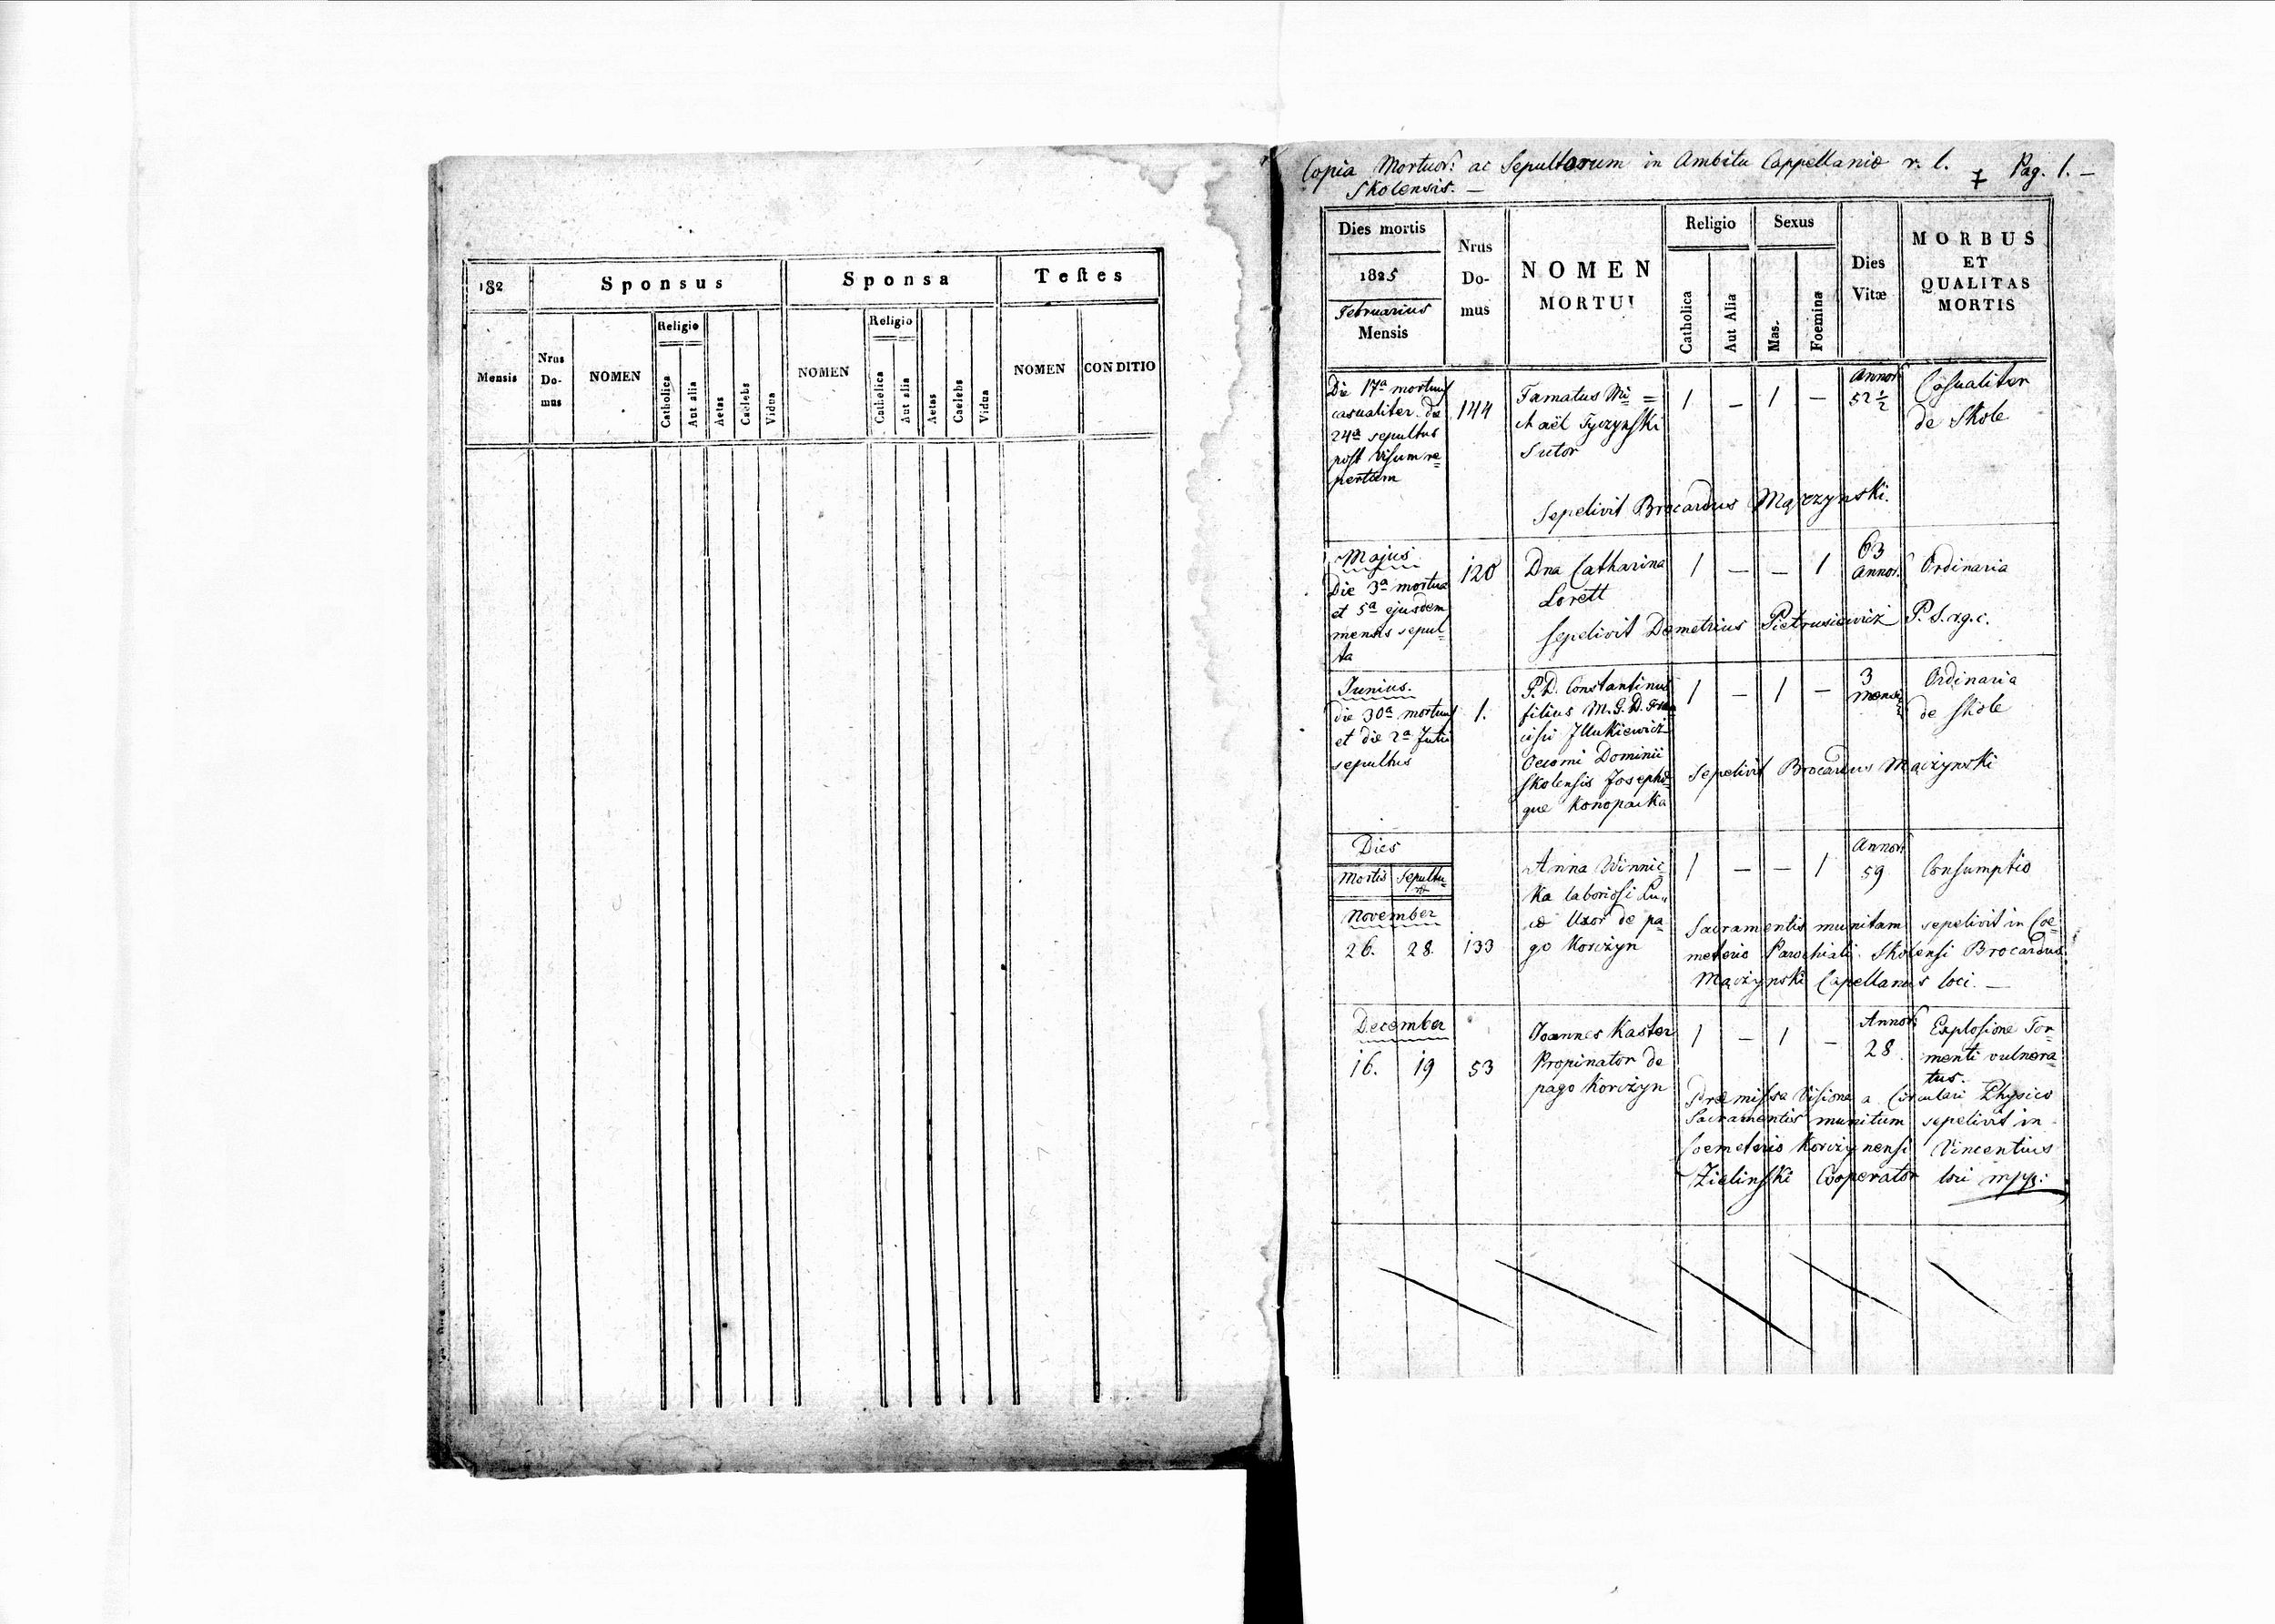 182
Sponsus
Sponsa
Testes
Mensis
Nrus
Do-
mus
NOMEN
Religio
Catholica
Aut alia
Aetas
Caelebs
Vidua
NOMEN
Religio
Catholica
Aut alia
Aetas
Caelebs
Vidua
NOMEN
CONDITIO
Copia Mortuor: ac Sepultorum in Ambitu Cappellaniæ r. l. Pag. 1. –
Skolensis. –
Dies mortis
1825
Februarius
Mensis
Nrus
Do-
mus
NOMEN
MORTUI
Religio
Catholica
Aut Alia
Sexus
Mas.
Foeminæ
Dies
Vitæ
MORBUS
ET
QUALITAS
MORTIS
Die 17a mortuus
casualiter die
24a sepultus
post visum re=
pertum
144
Famatus Mi=
chaël Tyczynski
Sutor
1 – 1 –
Annor:
52 1/2
Casualiter
de Skole
Sepelivit Brocardus Mączynski.
Majus
Die 3a mortua
et 5a ejusdem
mensis sepul=
ta
120
Dna Catharina
Lorett
1 – – 1
63
Annor.
Ordinaria
Sepelivit Demetrius Pietrusiewicz P. S. r. g. c.
Junius.
die 30a mortuus
et die 2a Julii
sepultus
1.
P. D. Constantinus
filius M. G. D. Fran
cisci Illukiewicz
Oeconomi Dominii
Skolensis Josephæ=
que Konopacka
1 – 1 –
3
Mensi=
Ordinaria
de Skole
Sepelivit Brocardus Mączynski
Dies
Mortis Sepultu=
ræ
November
26. 28. 133
Anna Winnic=
ka laboriosi Lu„
cæ Uxor de pa=
go Korczyn
1 – – 1
Annor:
59
Consumptio
Sacramentis munitam sepelivit in Coe=
meterio Parochiali Skolensi Brocardus
Mączynski Capellanus loci. –
December
16. 19 53
Joannes Kaster
Propinator de
pago Korczyn
1 – 1 –
Annor:
28.
Explosione Tor=
menti vulnera=
tus.
Præmissa Visione a Circulari Physico
Sacramentis munitum sepelivit in
Coemeterio Korczynensi Vincentius
Zielinski Cooperator loci mpp: